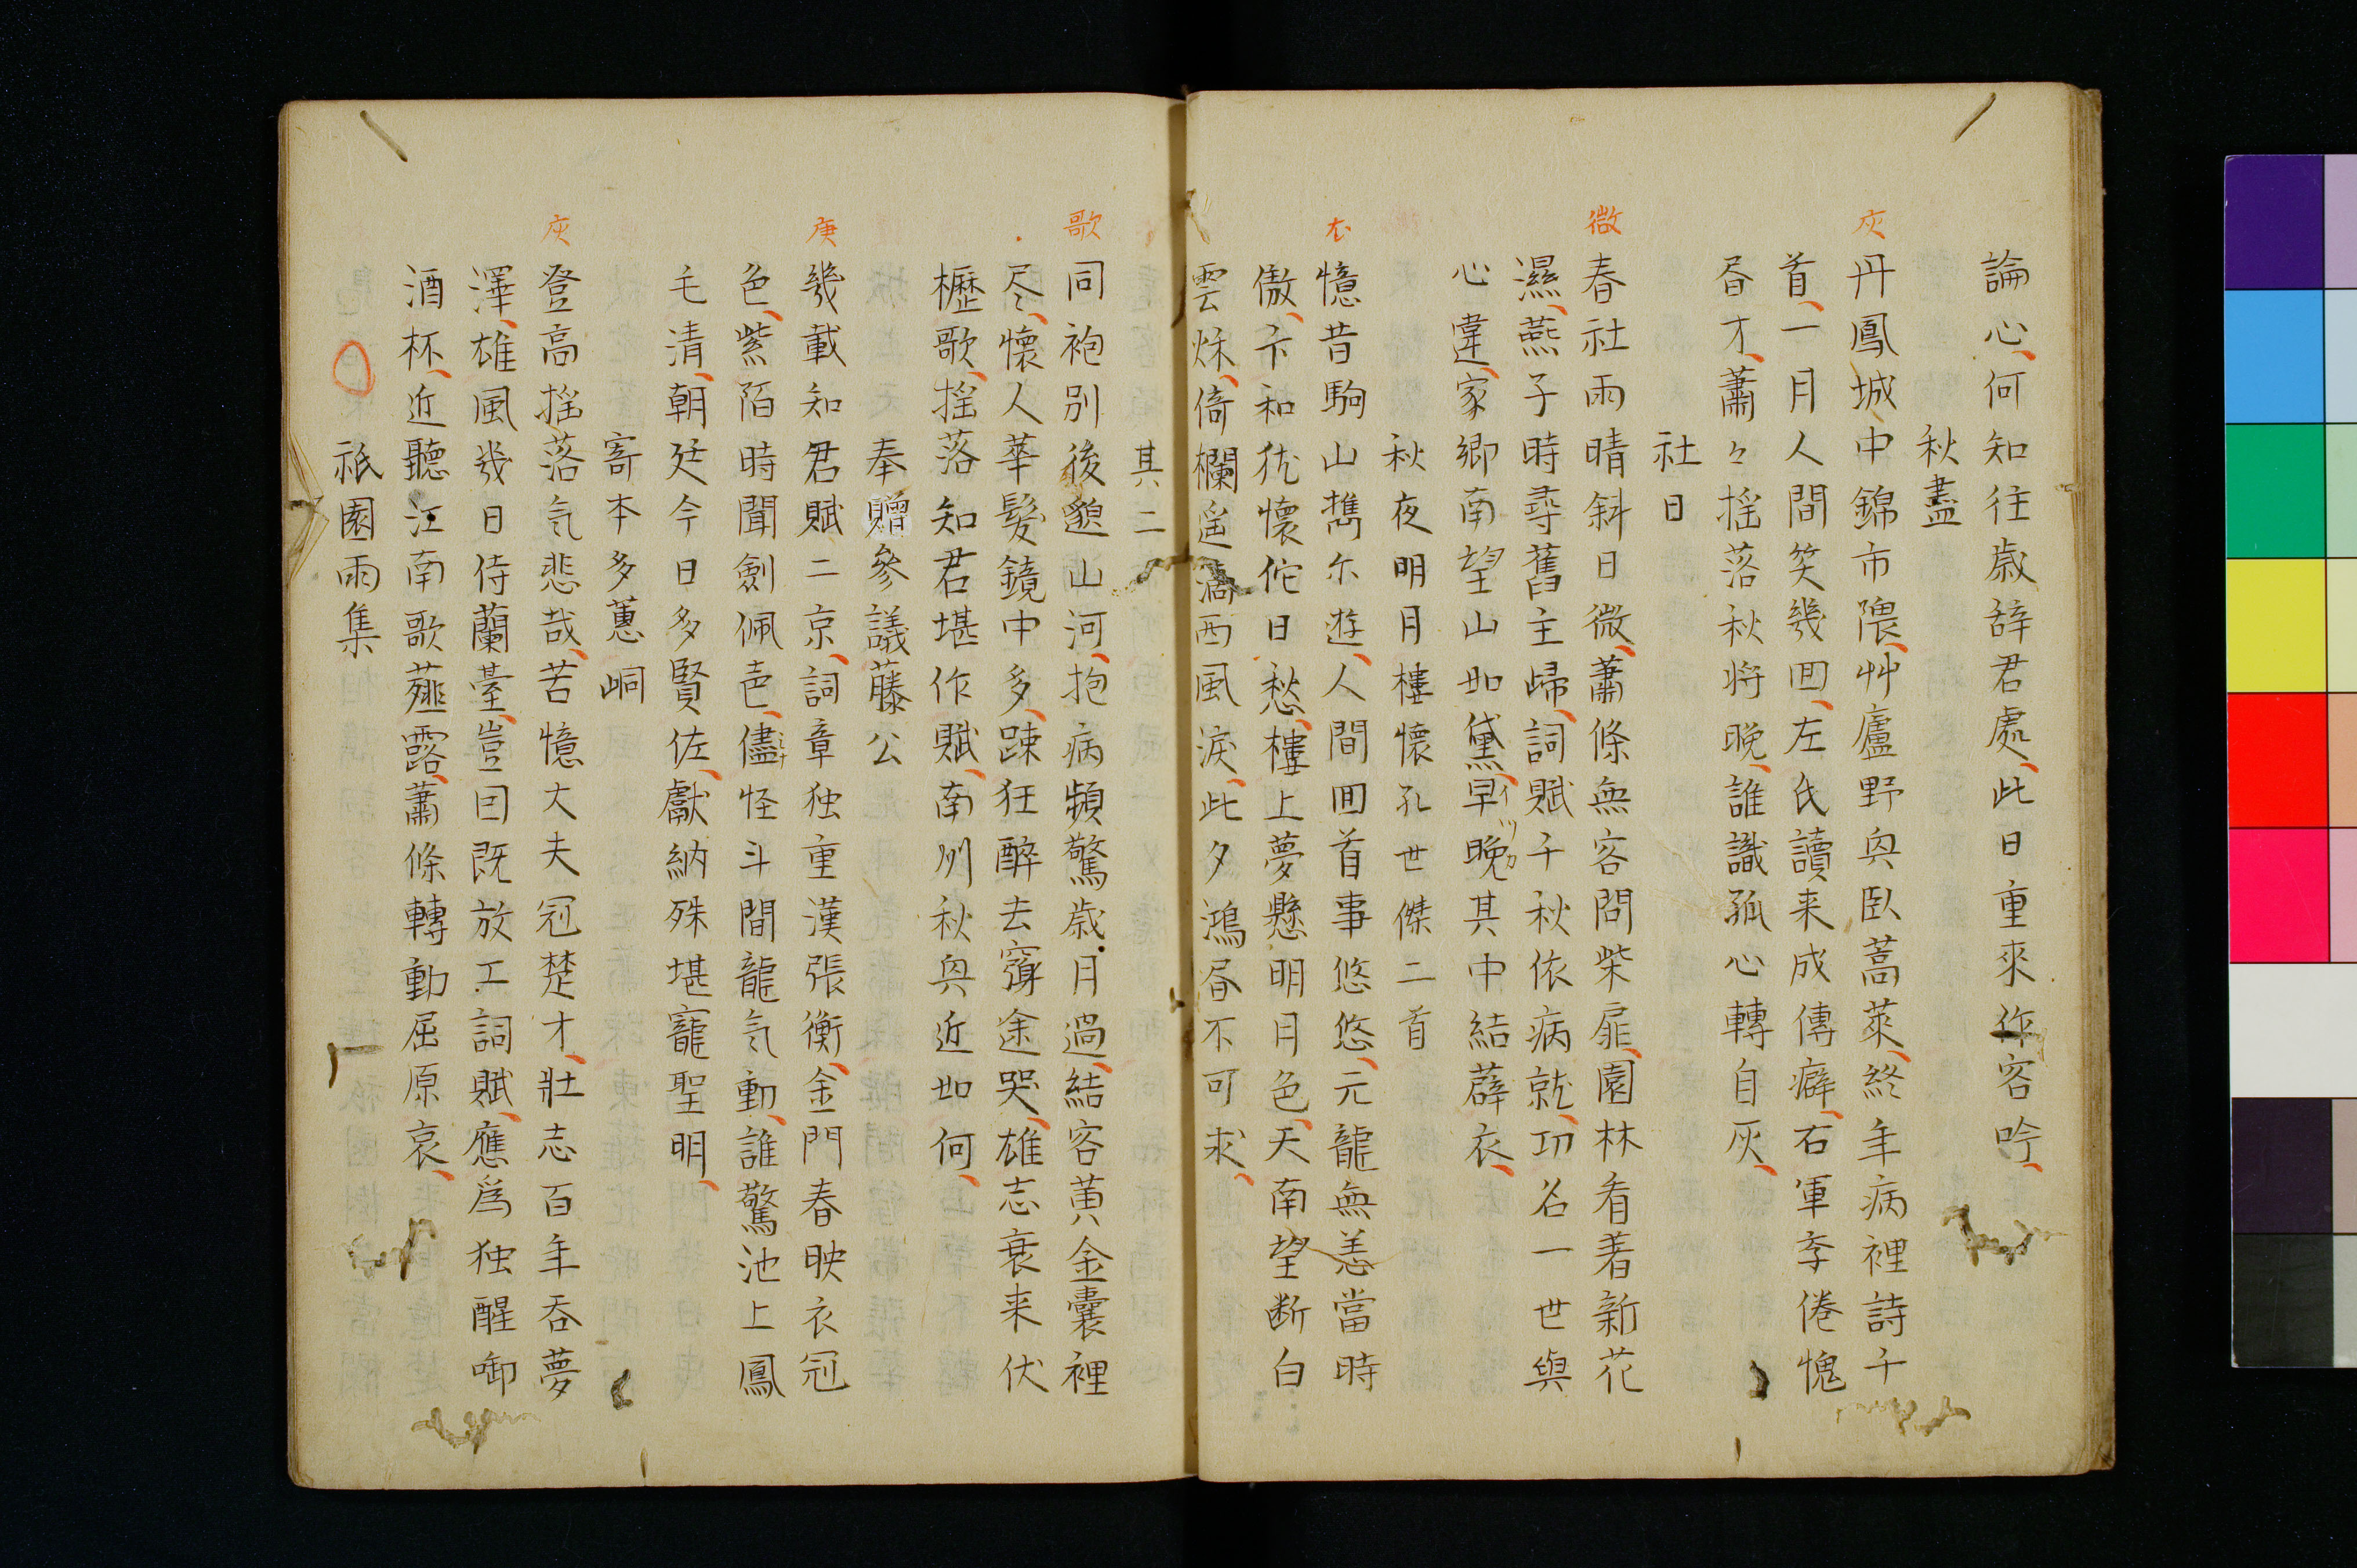 論心何知往歳辞君處此日重來作客吟
秋盡
灰
丹鳳城中錦市隈艸廬野奥臥蒿莱終年病裡詩千
首一月人間笑幾回左氏讀来成傳癖右軍李倦愧
昏才蕭々揺落秋将晩誰識孤心轉自灰
社日
微
春社雨晴斜日微蕭條無客問柴扉園林看著新花
濕燕子時尋舊主帰詞賦千秋依病就功名一世與
心違家郷南望山如黛早晩其中結薜衣
イツカ
秋夜明月樓懐孔世傑二首
尤
憶昔駒山携尓遊人間回首事悠悠元龍無恙當時
傲卞和犹懐佗日愁樓上夢懸明月色天南望断白
雲秌倚欄遥滴西風涙此夕鴻昏不可求
其二
歌
同袍別後邈山河抱病頻驚歳月過結客黄金囊裡
尽懐人華髪鏡中多踈狂醉去窮途哭雄志衰来伏
櫪歌揺落知君堪作賦南州秋奥近如何
奉贈參議藤公
庚
幾載知君賦二京詞章独重漢張衡金門春映衣冠
色紫陌時聞劍佩声儘怪斗間龍気動誰驚池上鳳
毛清朝廷今日多賢佐獻納殊堪寵聖明
寄本多蕙峒
灰
登高揺落気悲哉苦憶大夫冠楚才壮志百年呑夢
澤雄風幾日侍蘭臺豈曰既放工詞賦應爲独醒啣
酒杯近聽江南歌薤露蕭條轉動屈原哀
祇園雨集